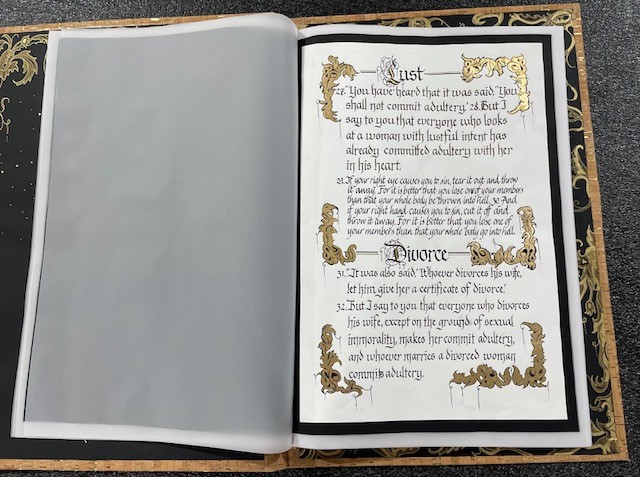 Lust
27. "You have heard that it was said, 'You
shall not commit adultery.' 28. But I
say to you that everyone who looks
at a woman with lustful intent has
already committed adultery with her
in his heart.
29. If your right eye causes you to sin, tear it out and throw
it away. For it is better that you lose one of your members
than that your whole body be thrown into hell. 30. And
if your right hand causes you to sin, cut it off and
throw it away. For it is better that you lose one of
your members than that your whole body go into hell.
Divorce
31. "It was also said, 'Whoever divorces his wife,
let him give her a certificate of divorce.'
32. But I say to you that everyone who divorces
his wife, except on the ground of sexual
immorality, makes her commit adultery,
and whoever marries a divorced woman
commits adultery.